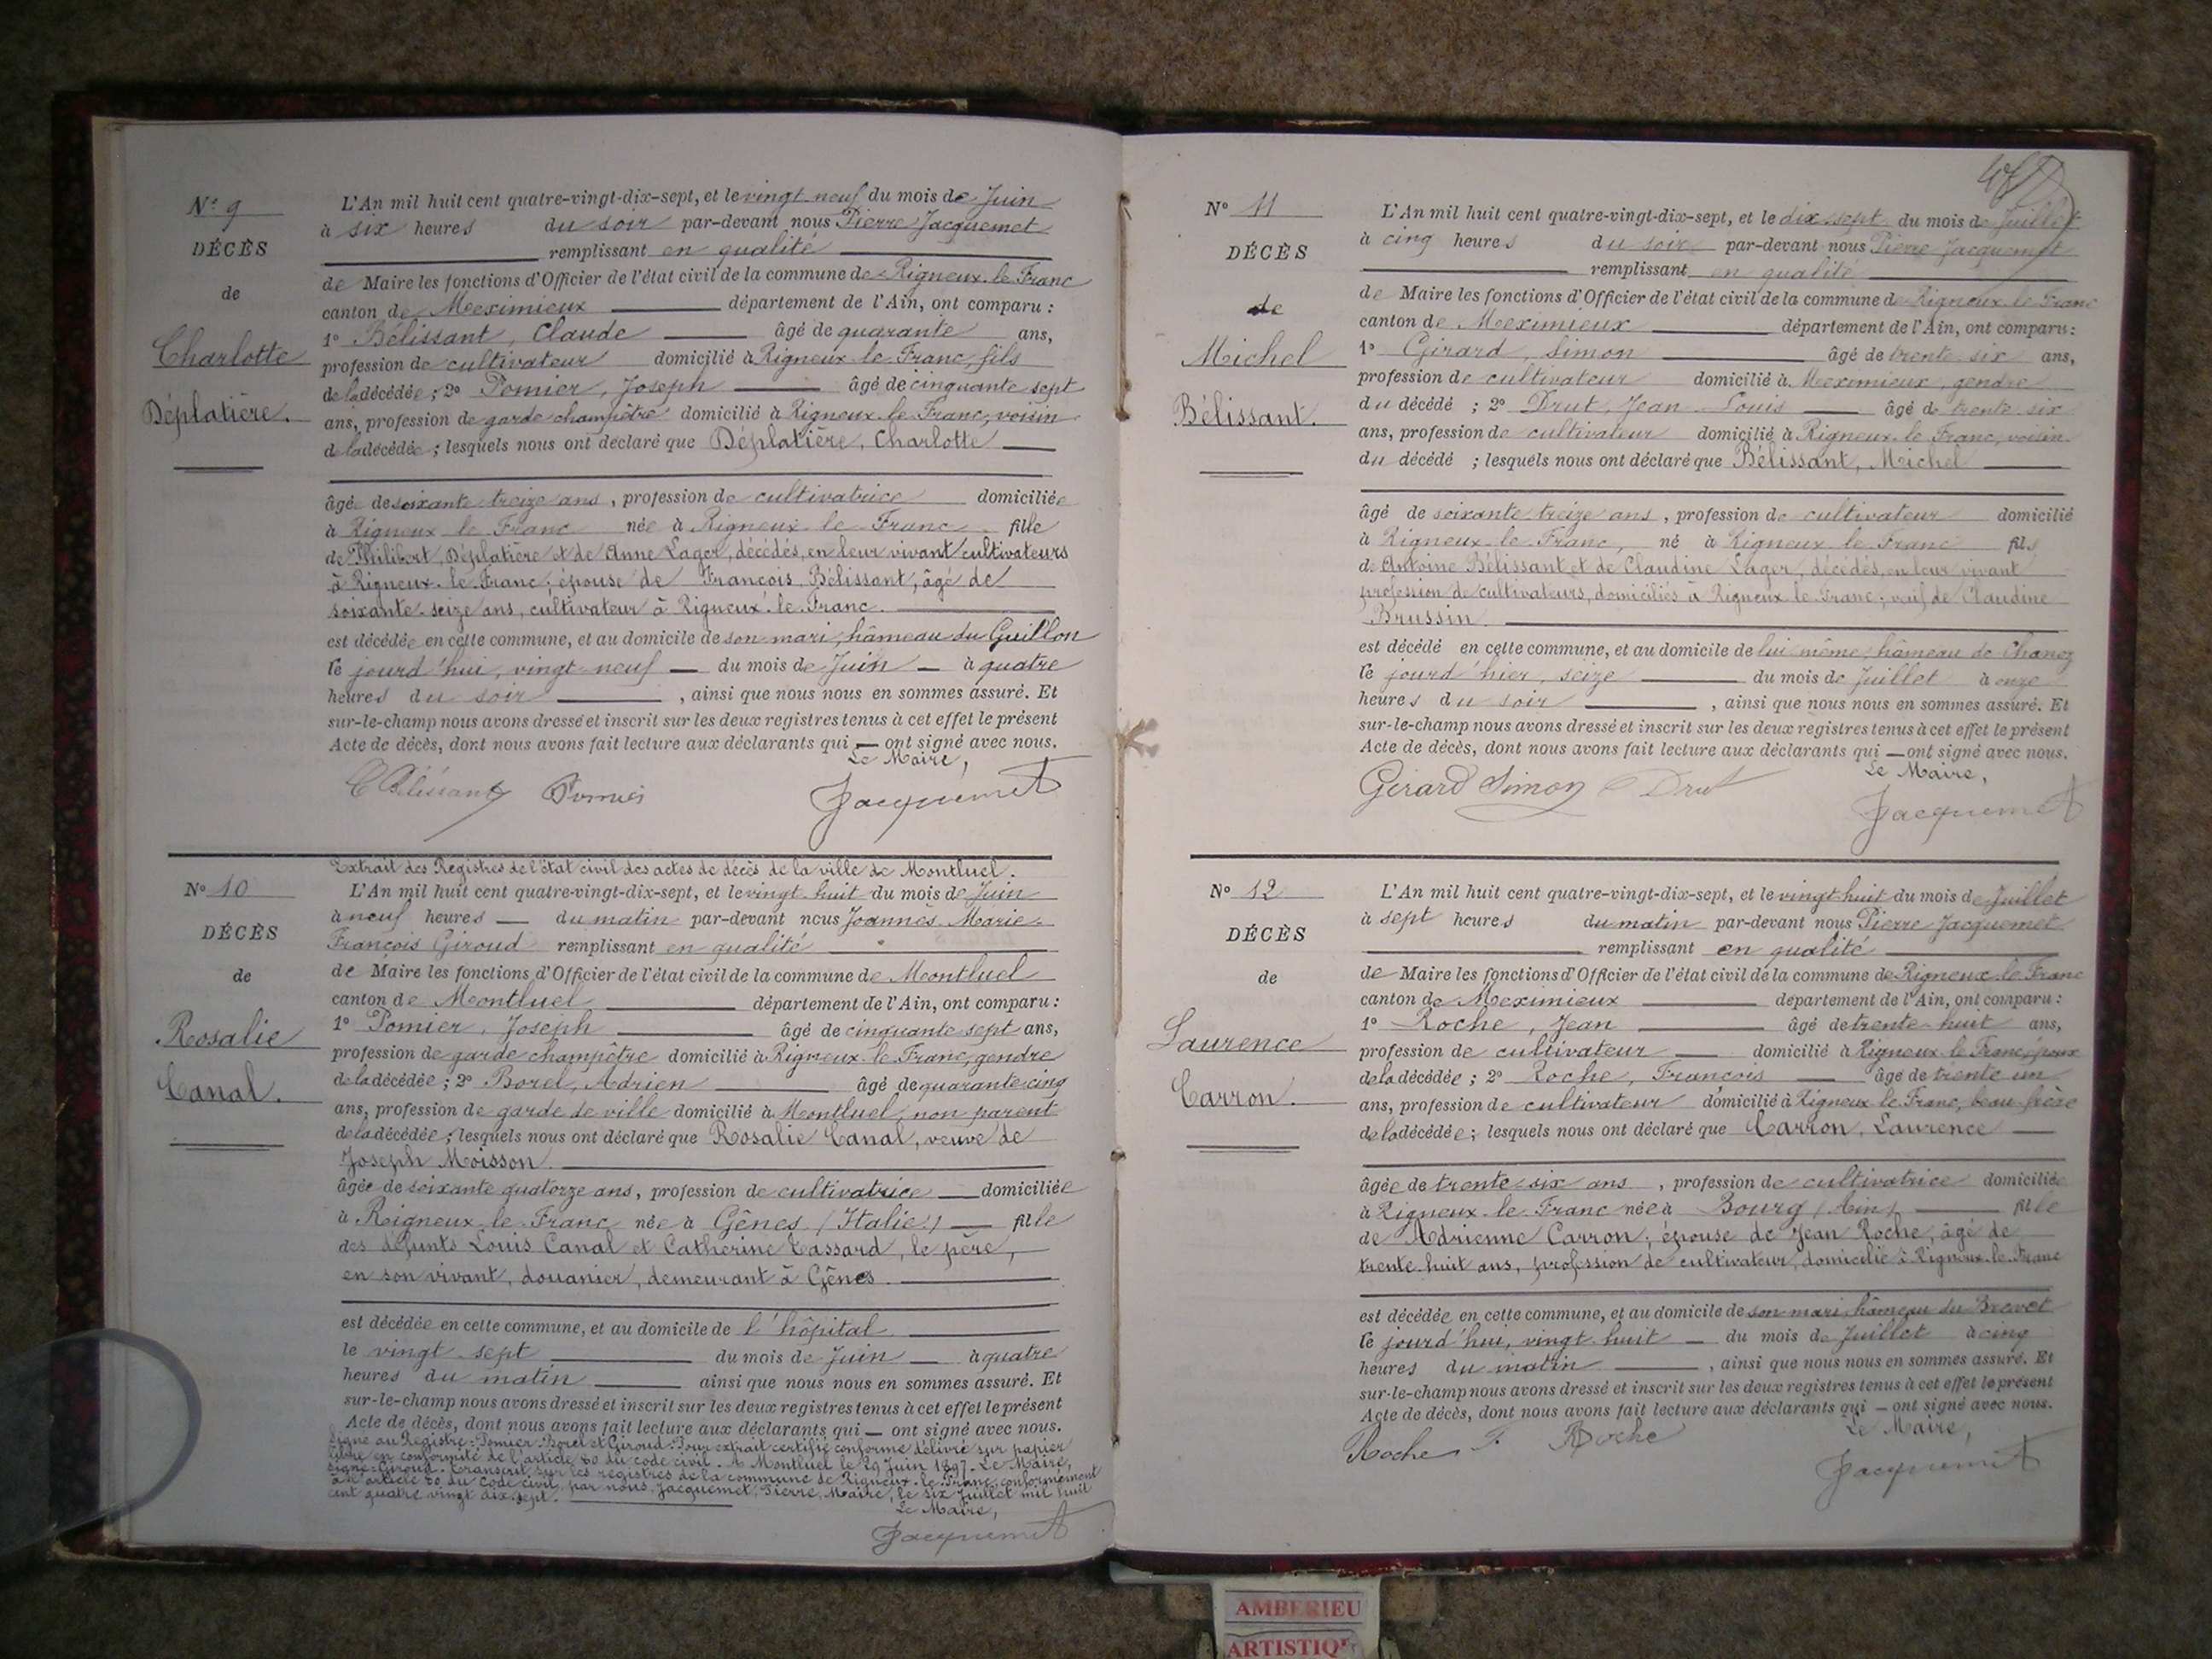 N° 9
DÉCÈS
de
Charlotte
Déplatière.
L'An mil huit cent quatre-vingt-dix-sept, et le vingt-neuf du mois de Juin
à six heures du soir par-devant nous Pierre Jacquemet
remplissant en qualité
de Maire les fonctions d'Officier de l'état civil de la commune de Rigneux-le-Franc
canton de Meximieux département de l'Ain, ont comparu :
1° Bélissant, Claude âgé de quarante ans,
profession de cultivateur domicilié à Rigneux-le-Franc, fils
de la décédée ; 2° Pomier, Joseph âgé de cinquante sept
ans, profession de garde champêtre domicilié à Rigneux-le-Franc, voisin
de la décédée ; lesquels nous ont déclaré que Déplatière, Charlotte
âgée de soixante treize ans, profession de cultivatrice domiciliée
à Rigneux-le-Franc née à Rigneux-le-Franc fille
de Philibert Déplatière et de Anne Lager, décédés, en leur vivant cultivateurs
à Rigneux-le-Franc ; épouse de François Bélissant, âgé de
soixante-seize ans, cultivateur à Rigneux-le-Franc.
est décédée en cette commune, et au domicile de son mari, hâmeau du Guillon
le jourd'hui, vingt-neuf du mois de Juin à quatre
heures du soir, ainsi que nous nous en sommes assuré. Et
sur-le-champ nous avons dressé et inscrit sur les deux registres tenus à cet effet le présent
Acte de décès, dont nous avons fait lecture aux déclarants qui — ont signé avec nous.
Le Maire,
C Bélissant Pomier Jacquemet
N° 10
DÉCÈS
de
Rosalie
Canal.
Extrait des Registres de l'état civil des actes de décès de la ville de Montluel.
L'An mil huit cent quatre-vingt-dix-sept, et le vingt-huit du mois de Juin
à neuf heures — du matin par-devant nous Joannès Marie-
François Giroud remplissant en qualité
de Maire les fonctions d'Officier de l'état civil de la commune de Montluel
canton de Montluel département de l'Ain, ont comparu :
1° Pomier, Joseph âgé de cinquante sept ans,
profession de garde champêtre domicilié à Rigneux-le-Franc, gendre
de la décédée ; 2° Borel, Adrien âgé de quarante cinq
ans, profession de garde de ville domicilié à Montluel, non parent
de la décédée ; lesquels nous ont déclaré que Rosalie Canal, veuve de
Joseph Moisson.
âgée de soixante quatorze ans, profession de cultivatrice domiciliée
à Rigneux-le-Franc née à Gênes (Italie) fille
des défunts Louis Canal et Catherine Tassard, le père,
en son vivant, douanier, demeurant à Gênes.
est décédée en cette commune, et au domicile de l'hôpital
le vingt-sept du mois de Juin à quatre
heures du matin ainsi que nous nous en sommes assuré. Et
sur-le-champ nous avons dressé et inscrit sur les deux registres tenus à cet effet le présent
Acte de décès, dont nous avons fait lecture aux déclarants qui — ont signé avec nous.
Signé au Registre : Pomier Borel et Giroud. Pour extrait certifié conforme délivré sur papier
libre en conformité de l'article 80 du code civil. A Montluel le 29 Juin 1897. Le Maire,
signé : Giroud. Transcrit sur les registres de la commune de Rigneux-le-Franc, conformément
à l'article 80 du Code civil, par nous, Jacquemet, Pierre, Maire, le six Juillet mil huit
cent quatre vingt dix sept.
Le Maire,
Jacquemet
N° 11
DÉCÈS
de
Michel
Bélissant.
L'An mil huit cent quatre-vingt-dix-sept, et le dix-sept du mois de Juillet
à cinq heures du soir par-devant nous Pierre Jacquemet
remplissant en qualité
de Maire les fonctions d'Officier de l'état civil de la commune de Rigneux-le-Franc
canton de Meximieux département de l'Ain, ont comparu :
1° Girard, Simon âgé de trente-six ans,
profession de cultivateur domicilié à Meximieux, gendre
du décédé ; 2° Drut, Jean-Louis âgé de trente-six
ans, profession de cultivateur domicilié à Rigneux-le-Franc, voisin
du décédé ; lesquels nous ont déclaré que Bélissant, Michel
âgé de soixante treize ans, profession de cultivateur domicilié
à Rigneux-le-Franc, né à Rigneux-le-Franc fils
de Antoine Bélissant et de Claudine Lager, décédés, en leur vivant
profession de cultivateurs, domiciliés à Rigneux-le-Franc ; veuf de Claudine
Brussin.
est décédé en cette commune, et au domicile de lui-même, hâmeau de Chanoz
le jourd'hier, seize du mois de Juillet à onze
heures du soir, ainsi que nous nous en sommes assuré. Et
sur-le-champ nous avons dressé et inscrit sur les deux registres tenus à cet effet le présent
Acte de décès, dont nous avons fait lecture aux déclarants qui — ont signé avec nous.
Le Maire,
Girard Simon Drut Jacquemet
N° 12
DÉCÈS
de
Laurence
Carron.
L'An mil huit cent quatre-vingt-dix-sept, et le vingt-huit du mois de Juillet
à sept heures du matin par-devant nous Pierre Jacquemet
remplissant en qualité
de Maire les fonctions d'Officier de l'état civil de la commune de Rigneux-le-Franc
canton de Meximieux département de l'Ain, ont comparu :
1° Roche, Jean âgé de trente-huit ans,
profession de cultivateur domicilié à Rigneux-le-Franc, époux
de la décédée ; 2° Roche, François âgé de trente un
ans, profession de cultivateur domicilié à Rigneux-le-Franc, beau-frère
de la décédée ; lesquels nous ont déclaré que Carron, Laurence
âgée de trente-six ans, profession de cultivatrice domiciliée
à Rigneux-le-Franc née à Bourg (Ain) fille
de Adrienne Carron ; épouse de Jean Roche, âgé de
trente-huit ans, profession de cultivateur, domicilié à Rigneux-le-Franc
est décédée en cette commune, et au domicile de son mari, hâmeau du Brevet
le jourd'hui, vingt-huit du mois de Juillet à cinq
heures du matin, ainsi que nous nous en sommes assuré. Et
sur-le-champ nous avons dressé et inscrit sur les deux registres tenus à cet effet le présent
Acte de décès, dont nous avons fait lecture aux déclarants qui — ont signé avec nous.
Le Maire,
Roche F. Roche Jacquemet
AMBERIEU
ARTISTIQ